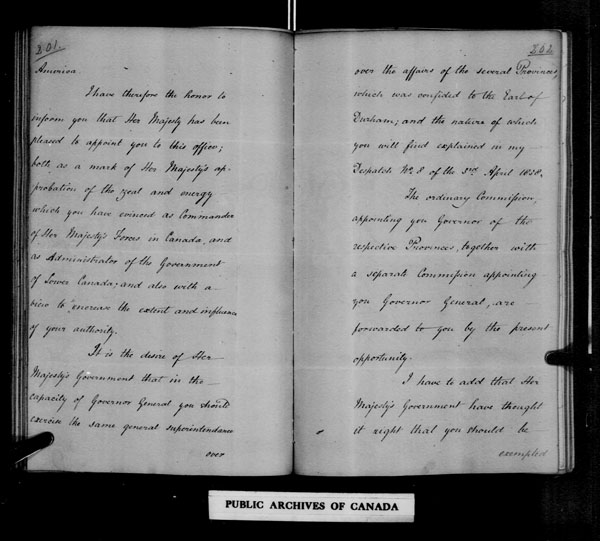 201.
America.
I have therefore the honor to
inform you that Her Majesty has been
pleased to appoint you to this office;
both as a mark of Her Majesty's ap-
probation of the zeal and energy
which you have evinced as Commander
of Her Majesty's Forces in Canada, and
as Administrator of the Government
of Lower Canada; and also with a
view to encrease the extent and influence
of your authority.
It is the desire of Her
Majesty's Government that in the
capacity of Governor General you should
exercise the same general superintendance
over
202
over the affairs of the several Provinces,
which was confided to the Earl of
Durham; and the nature of which
you will find explained in my
Despatch No. 8 of the 3rd April 1838.
The ordinary Commission,
appointing you Governor of the
respective Provinces, together with
a separate Commission appointing
you Governor General, are
forwarded to you by the present
opportunity.
I have to add that Her
Majesty's Government have thought
it right that you should be
exempted
PUBLIC ARCHIVES OF CANADA